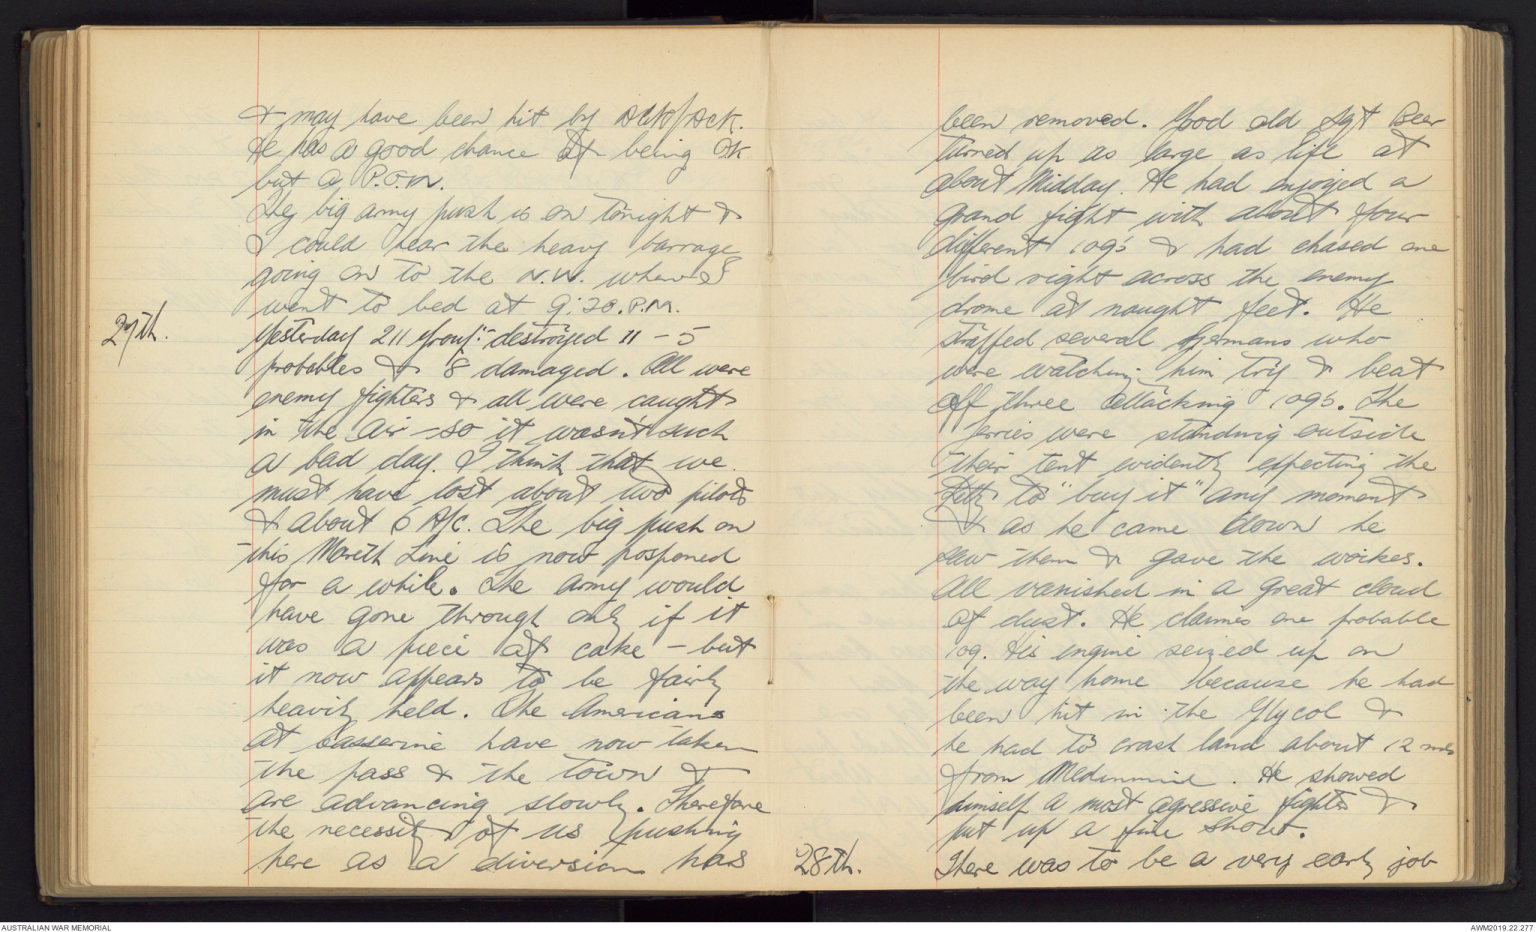 & may have been hit by Ack/Ack.
He has a good chance of being OK
but a P.O.W.
The big army push is on tonight &
I could hear the heavy barrage
going on to the N.W. when I
went to bed at 9:30.P.M.
27th.
Yesterday 211 Group destroyed 11 - 5
probables & 8 damaged. All were
enemy fighters & all were caught
in the air - so it wasn't such
a bad day. I think that we
must have lost about two pilots
& about 6 A/c. The big push on
this Mareth Line is now posponed
for a while. The army would
have gone through only if it
was a piece of cake - but
it now appears to be fairly
heavily held. The Americans
at Kasserine have now taken
the pass & the town &
are advancing slowly. Therefore
the necessity of us pushing
here as a diversion has
been removed. Good old Sgt Beer
turned up as large as life at
about Midday. He had enjoyed a
grand fight with about four
different 109s & had chased one
bird right across the enemy
drome at nought feet. He
straffed several Germans who
were watching him try & beat
off three attacking 109s. The
Jerries were standing outside
their tent evidently expecting the
Kitty to "buy it" any moment
& as he came down he
saw them & gave the works.
All vanished in a great cloud
of dust. He claims one probable
109. His engine seized up on
the way home because he had
been hit in the Glycol &
he had to crash land about 12 mls
from Medinnine. He showed
himself a most agressive fighter &
put up a fine show.
28th.
There was to be a very early job
AUSTRALIAN WAR MEMORIAL
AWM2019.22.277